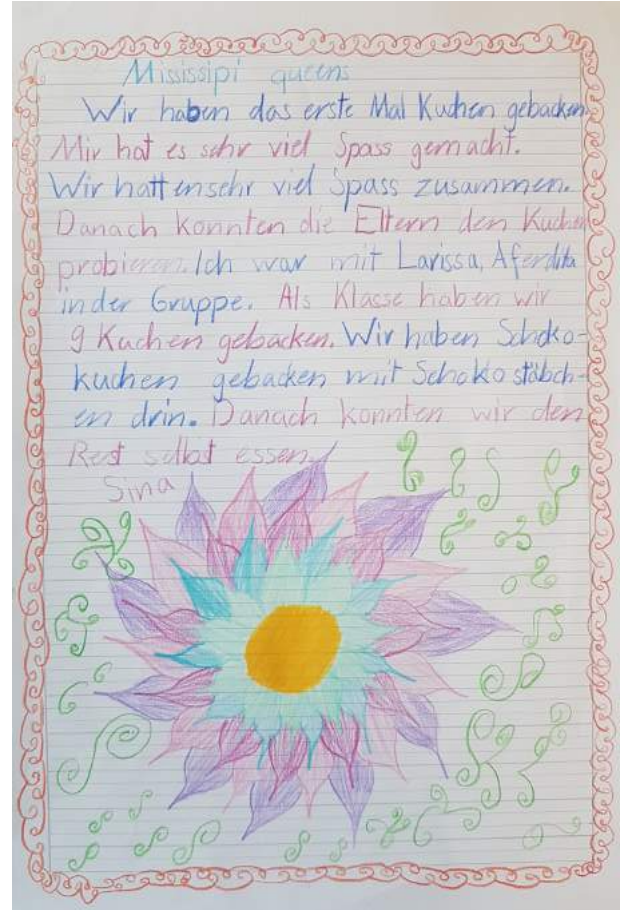 Mississipi queens
Wir haben das erste Mal Kuchen gebacken.
Mir hat es sehr viel Spass gemacht.
Wir hatten sehr viel Spass zusammen.
Danach konnten die Eltern den Kuchen
probieren. Ich war mit Larissa, Aferdita
in der Gruppe. Als Klasse haben wir
9 Kuchen gebacken. Wir haben Schoko-
kuchen gebacken mit Schoko stäbch-
en drin. Danach konnten wir den
Rest selbst essen.
Sina